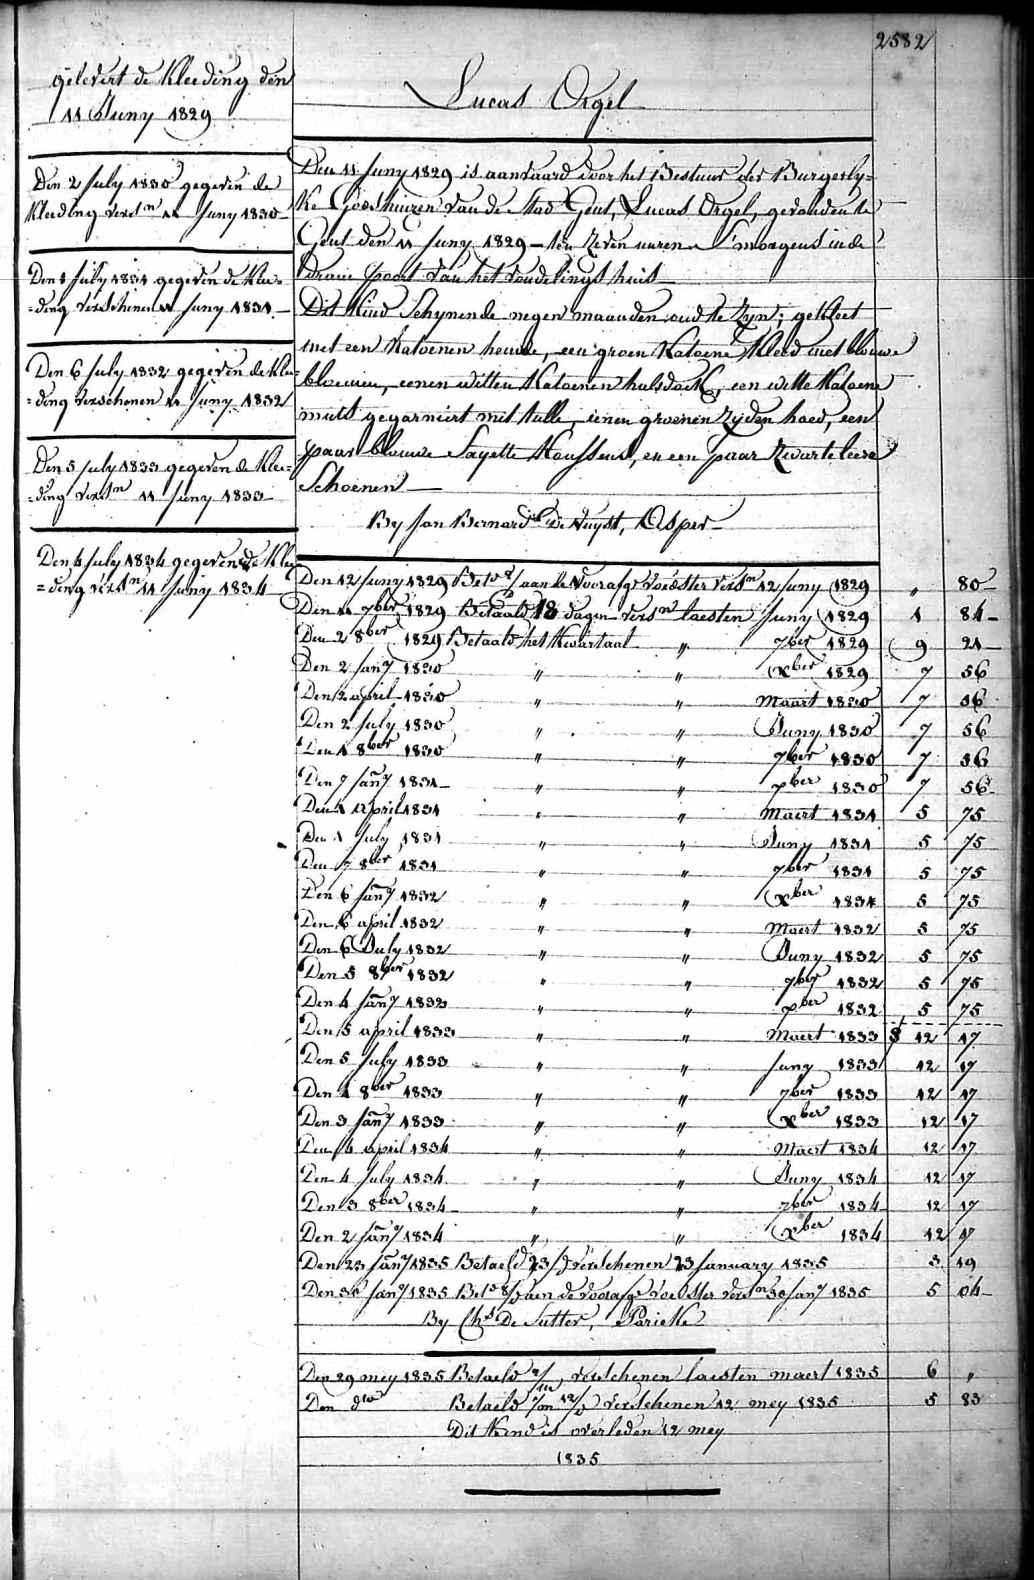 2582
gelevert de Kleeding den
11 Juny 1829
Den 2 July 1830 gegeven de
Kleeding versn 11 Juny 1830
Den 1 July 1831 gegeven de Klee-
=ding verschenen 11 Juny 1831
Den 6 July 1832 gegeven de Klee=
=ding verschenen 11 Juny 1832
Den 5 July 1833 gegeven de Klee=
=ding versn 11 Juny 1833
Den 4 July 1834 gegeven de Klee
=ding versn 11 Juny 1834
Lucas Orgel
Den 11 Juny 1829 is aanvaard door het Bestuur der Burgerly=
ke Godshuizen van de Stad Gent, Lucas Orgel, gevonden te
Gent den 11 Juny 1829 ten zeven uuren s'morgens in de
draeie poort van het vondelings huis
Dit Kind Schynende negen maanden oud te zyn; gekleet
met een Katoenen hemde, een groen Katoene Kleed met blouwe
bloemen, eenen witten Katoenen halsdoek, een witte Katoene
muts gegarniert met tulle, eenen groenen zyden hoed, een
paar blouwe Sayette Koussens, en een paar zwarte leere
Schoenen
By Jan Bernard De Nuyst, Asper
Den 12 Juny 1829 Betd aan de Voorafge voedster versn 12 Juny 1829 " 80
Den 11 7ber 1829 Betaald 18 dagen versn laesten Juny 1829 1 84
Den 2 8ber 1829 Betaald het Kwartaal " 7ber 1829 9 21
Den 2 Jany 1830 " " Xber 1829 7 56
Den 2 april 1830 " " Maart 1830 7 56
Den 2 July 1830 " " Juny 1830 7 56
Den 1 8ber 1830 " " 7ber 1830 7 56
Den 7 Jany 1831 " " xber 1830 7 56
Den 1 April 1831 " " Maert 1831 5 75
Den 1 July 1831 " " Juny 1831 5 75
Den 7 8ber 1831 " " 7ber 1831 5 75
Den 6 Jany 1832 " " Xber 1831 5 75
Den 6 april 1832 " " Maert 1832 5 75
Den 6 July 1832 " " Juny 1832 5 75
Den 5 8ber 1832 " " 7ber 1832 5 75
Den 4 Jany 1833 " " xber 1832 5 75
Den 5 april 1833 " " Maert 1833 f 12 17
Den 5 July 1833 " " Juny 1833 12 17
Den 4 8ber 1833 " " 7ber 1833 12 17
Den 3 Jany 1833 " " Xber 1833 12 17
Den 4 april 1834 " " Maert 1834 12 17
Den 4 July 1834 " " Juny 1834 12 17
Den 3 8ber 1834 " " 7ber 1834 12 17
Den 2 Jany 1834 " " Xber 1834 12 17
Den 23 Jany 1835 Betaeld 23/d verschenen 23 January 1835 3 19
Den 30 Jany 1835 Betd aen de voorafge voedster versn 30 Jany 1835 5 04
By Chs De Sutter, Parieke
Den 29 mey 1835 Betaeld verschenen laesten maert 1835 6 "
Den dto Betaeld 1/m 12/d verschenen 12 mey 1835 5 83
Dit Kind is overleden 12 mey
1835